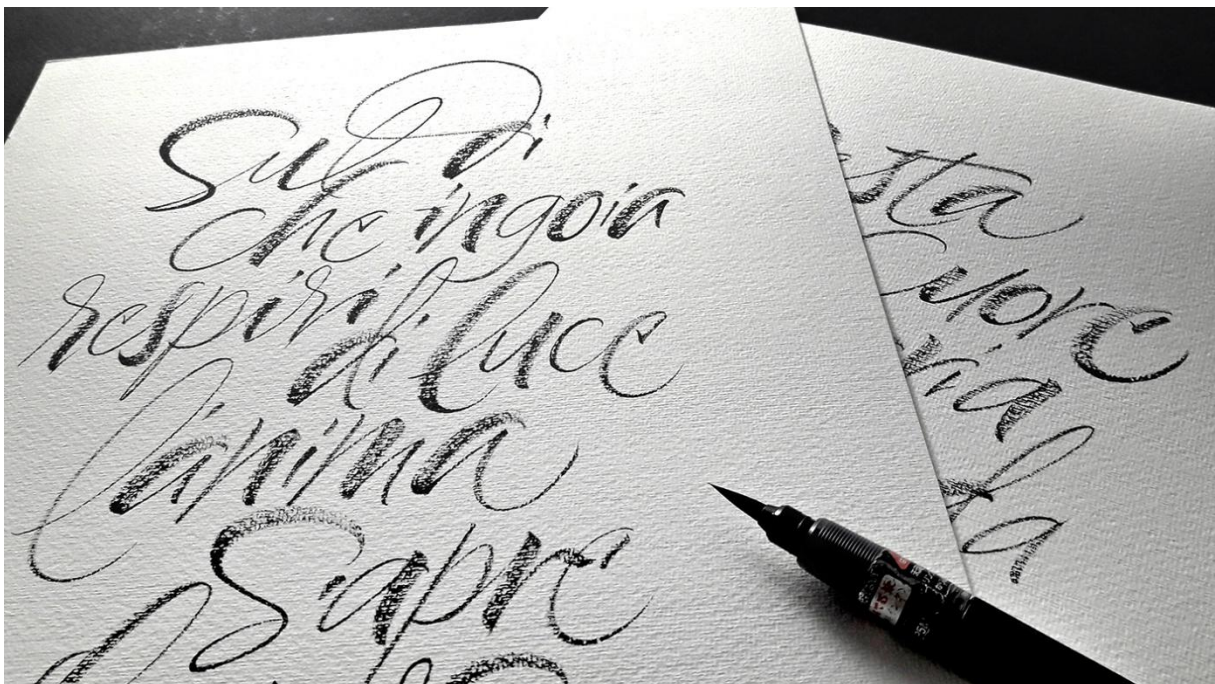 Sul dì
che ingoia
respiri
di luce
l'anima
S'apre
sta
Cuore